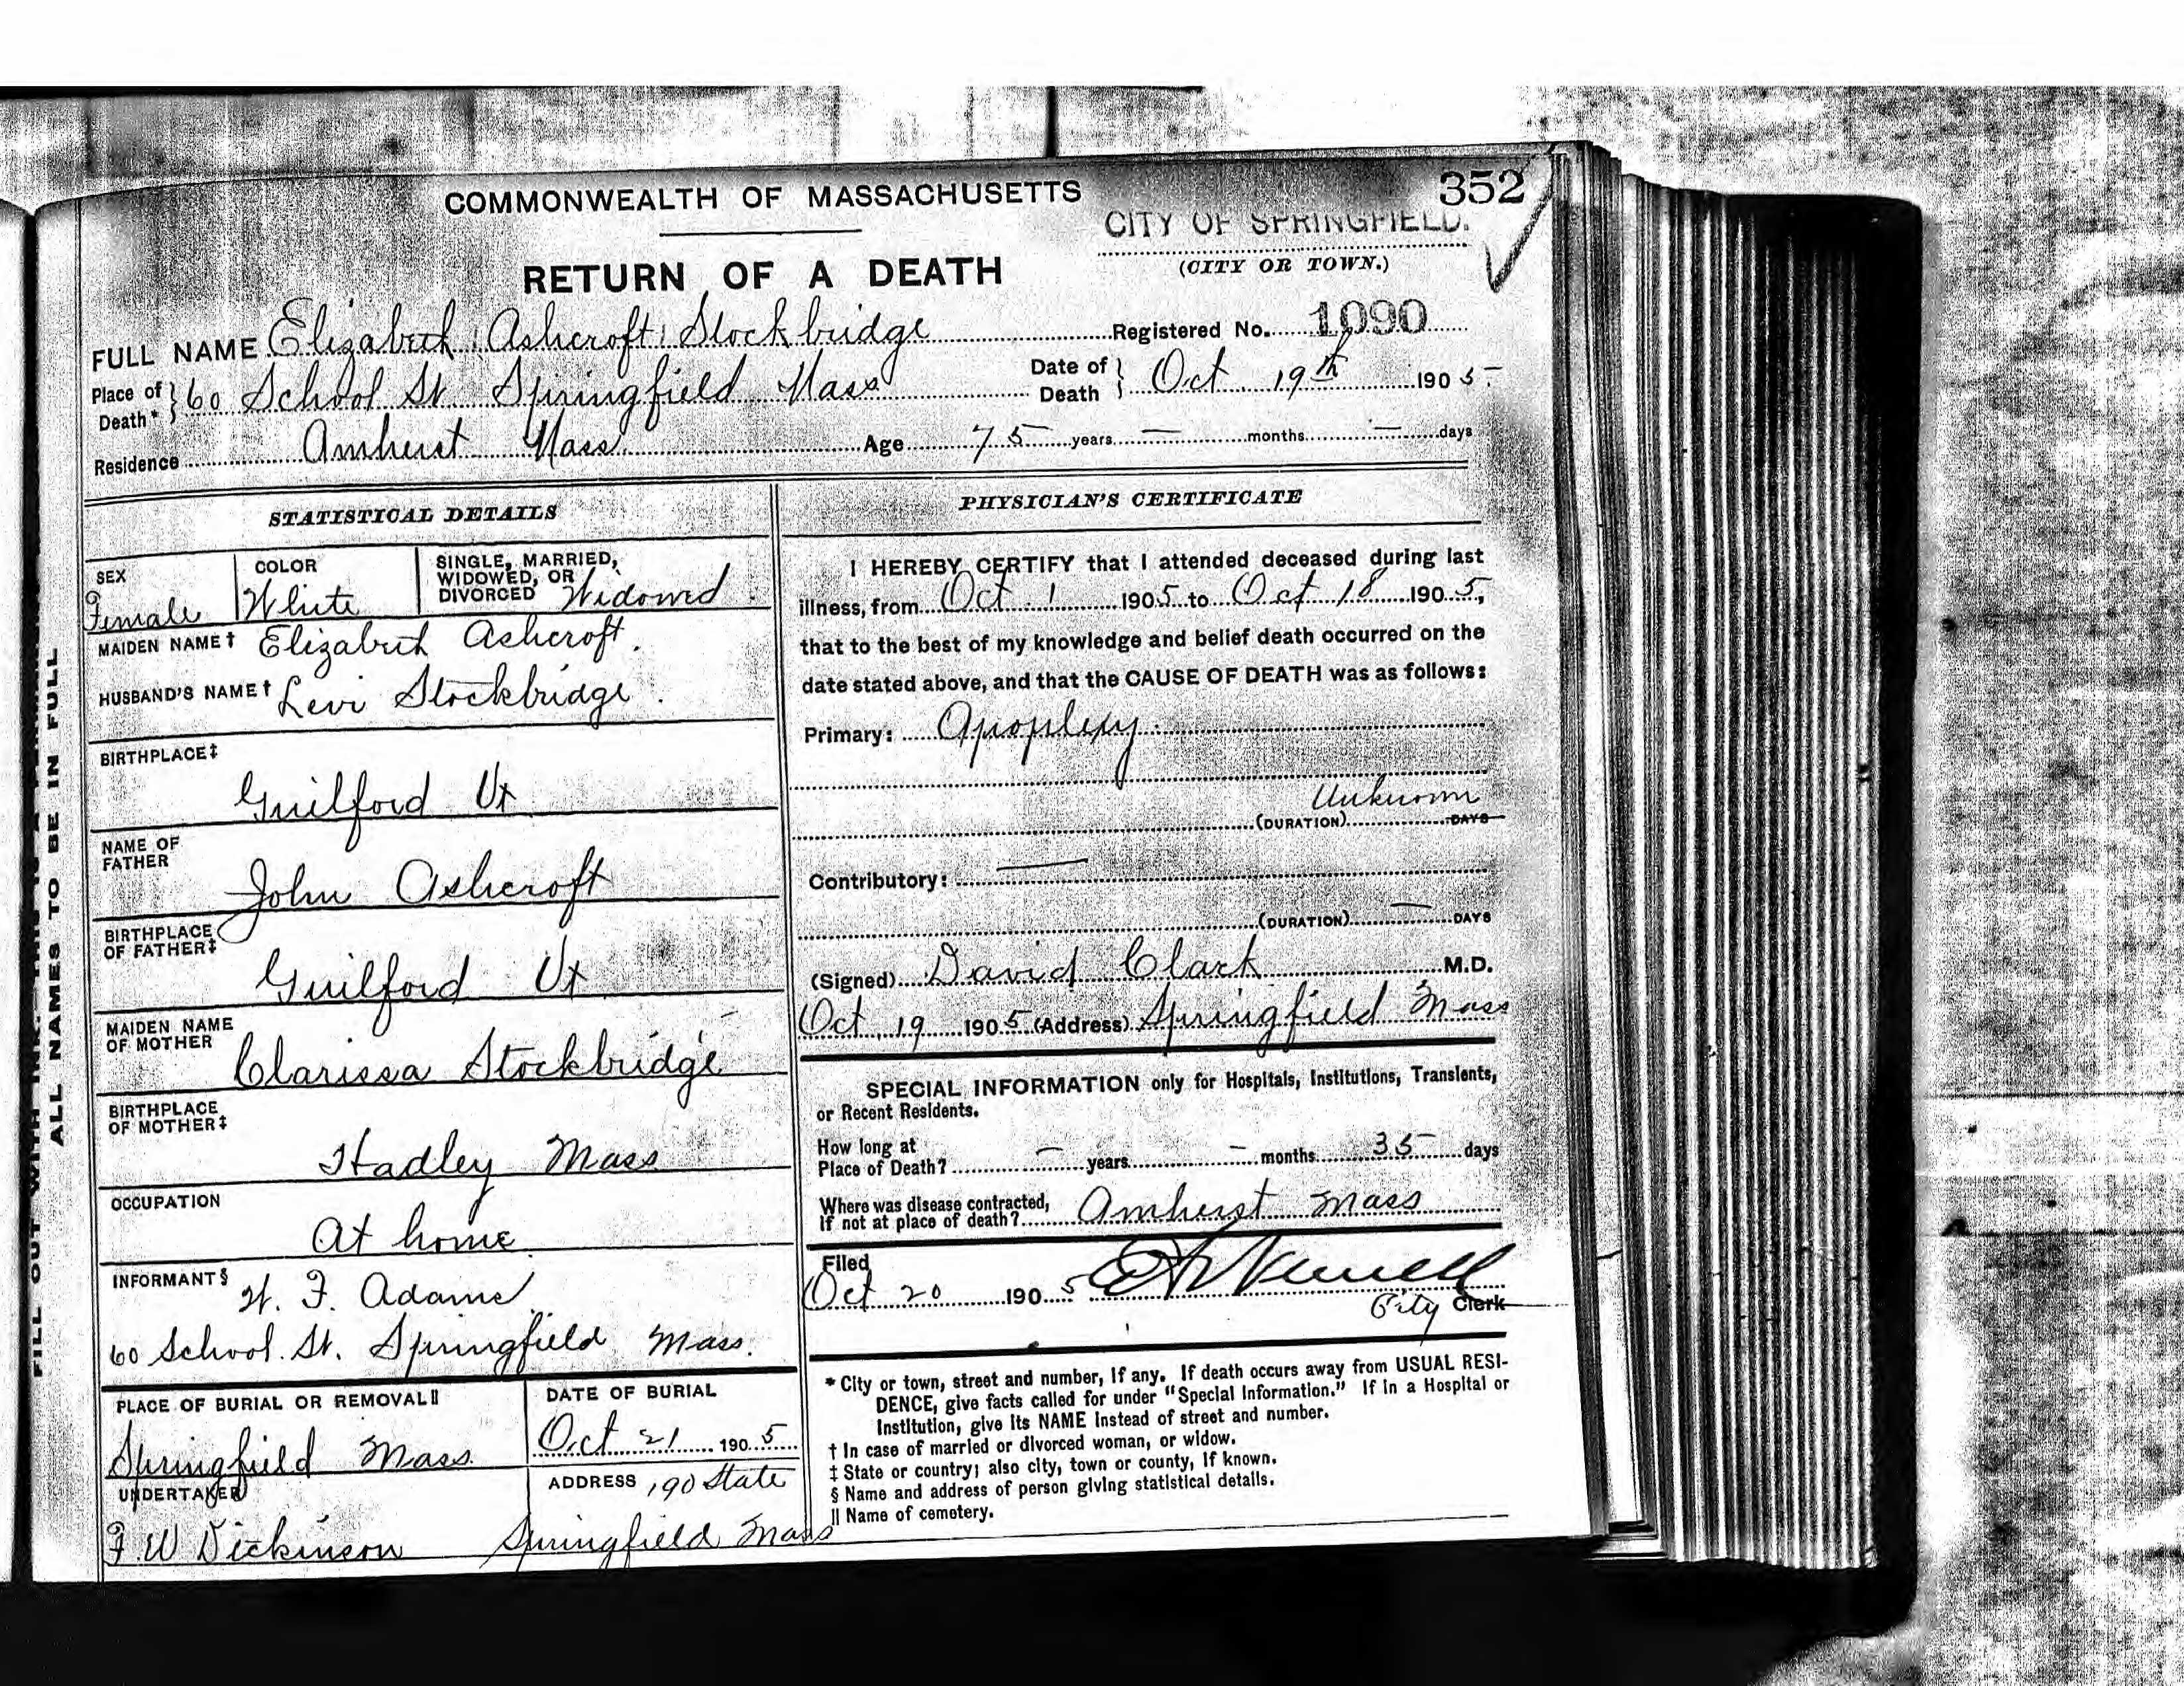 COMMONWEALTH OF MASSACHUSETTS
352
CITY OF SPRINGFIELD.
(CITY OR TOWN.)
RETURN OF A DEATH
FULL NAME Elizabeth Ashcroft Stockbridge Registered No. 1090
Place of Death* } 60 School St. Springfield Mass Date of Death } Oct 19th 1905
Residence Amherst Mass Age 75 years — months — days
STATISTICAL DETAILS
SEX Female
COLOR White
SINGLE, MARRIED, WIDOWED, OR DIVORCED Widowed
MAIDEN NAME† Elizabeth Ashcroft.
HUSBAND'S NAME† Levi Stockbridge.
BIRTHPLACE‡
Guilford Vt
NAME OF FATHER
John Ashcroft
BIRTHPLACE OF FATHER‡
Guilford Vt
MAIDEN NAME OF MOTHER
Clarissa Stockbridge
BIRTHPLACE OF MOTHER‡
Hadley Mass
OCCUPATION
At home
INFORMANT§
F. Adams
60 School St. Springfield Mass.
PLACE OF BURIAL OR REMOVAL||
Springfield Mass.
DATE OF BURIAL
Oct 21 1905
UNDERTAKER
F. W Dickinson
ADDRESS 190 State
Springfield Mass
PHYSICIAN'S CERTIFICATE
I HEREBY CERTIFY that I attended deceased during last
illness, from Oct. 1 1905 to Oct 18 1905,
that to the best of my knowledge and belief death occurred on the
date stated above, and that the CAUSE OF DEATH was as follows:
Primary: Apoplexy.
Unknown
(DURATION) DAYS
Contributory: —
(DURATION) — DAYS
(Signed) David Clark M.D.
Oct 19 1905 (Address) Springfield Mass
SPECIAL INFORMATION only for Hospitals, Institutions, Transients,
or Recent Residents.
How long at
Place of Death? — years — months 35 days
Where was disease contracted,
if not at place of death? Amherst Mass
Filed
Oct 20 1905
City Clerk
* City or town, street and number, if any. If death occurs away from USUAL RESI-
DENCE, give facts called for under "Special Information." If in a Hospital or
Institution, give its NAME instead of street and number.
† In case of married or divorced woman, or widow.
‡ State or country; also city, town or county, if known.
§ Name and address of person giving statistical details.
|| Name of cemetery.
FILL OUT WITH INK.
ALL NAMES TO BE IN FULL